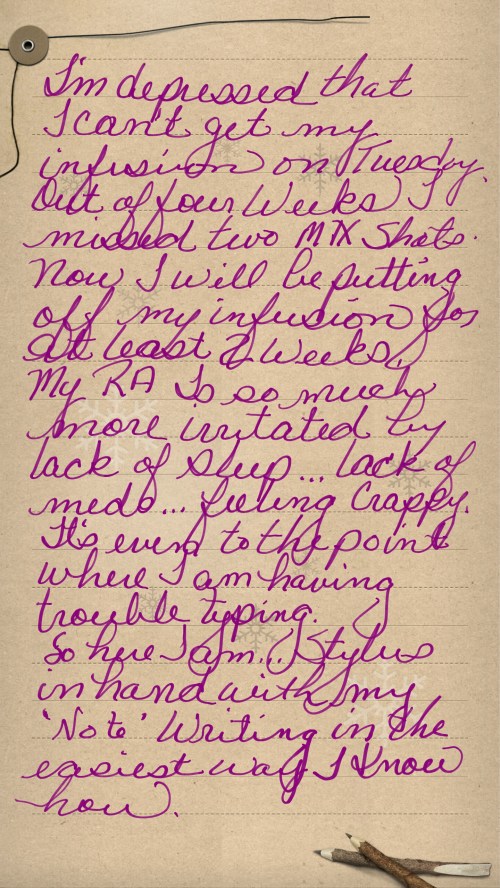 I'm depressed that
I can't get my
infusion on Tuesday.
Out of four Weeks I
missed two MTX Shots.
Now I will be putting
off my infusion for
at least 2 weeks.
My RA Is so much
more irritated by
lack of sleep... lack of
meds... feeling Crappy.
It's even to the point
where I am having
trouble typing.
So here I am... Stylus
in hand with my
'Note' Writing in the
easiest way I know
how.